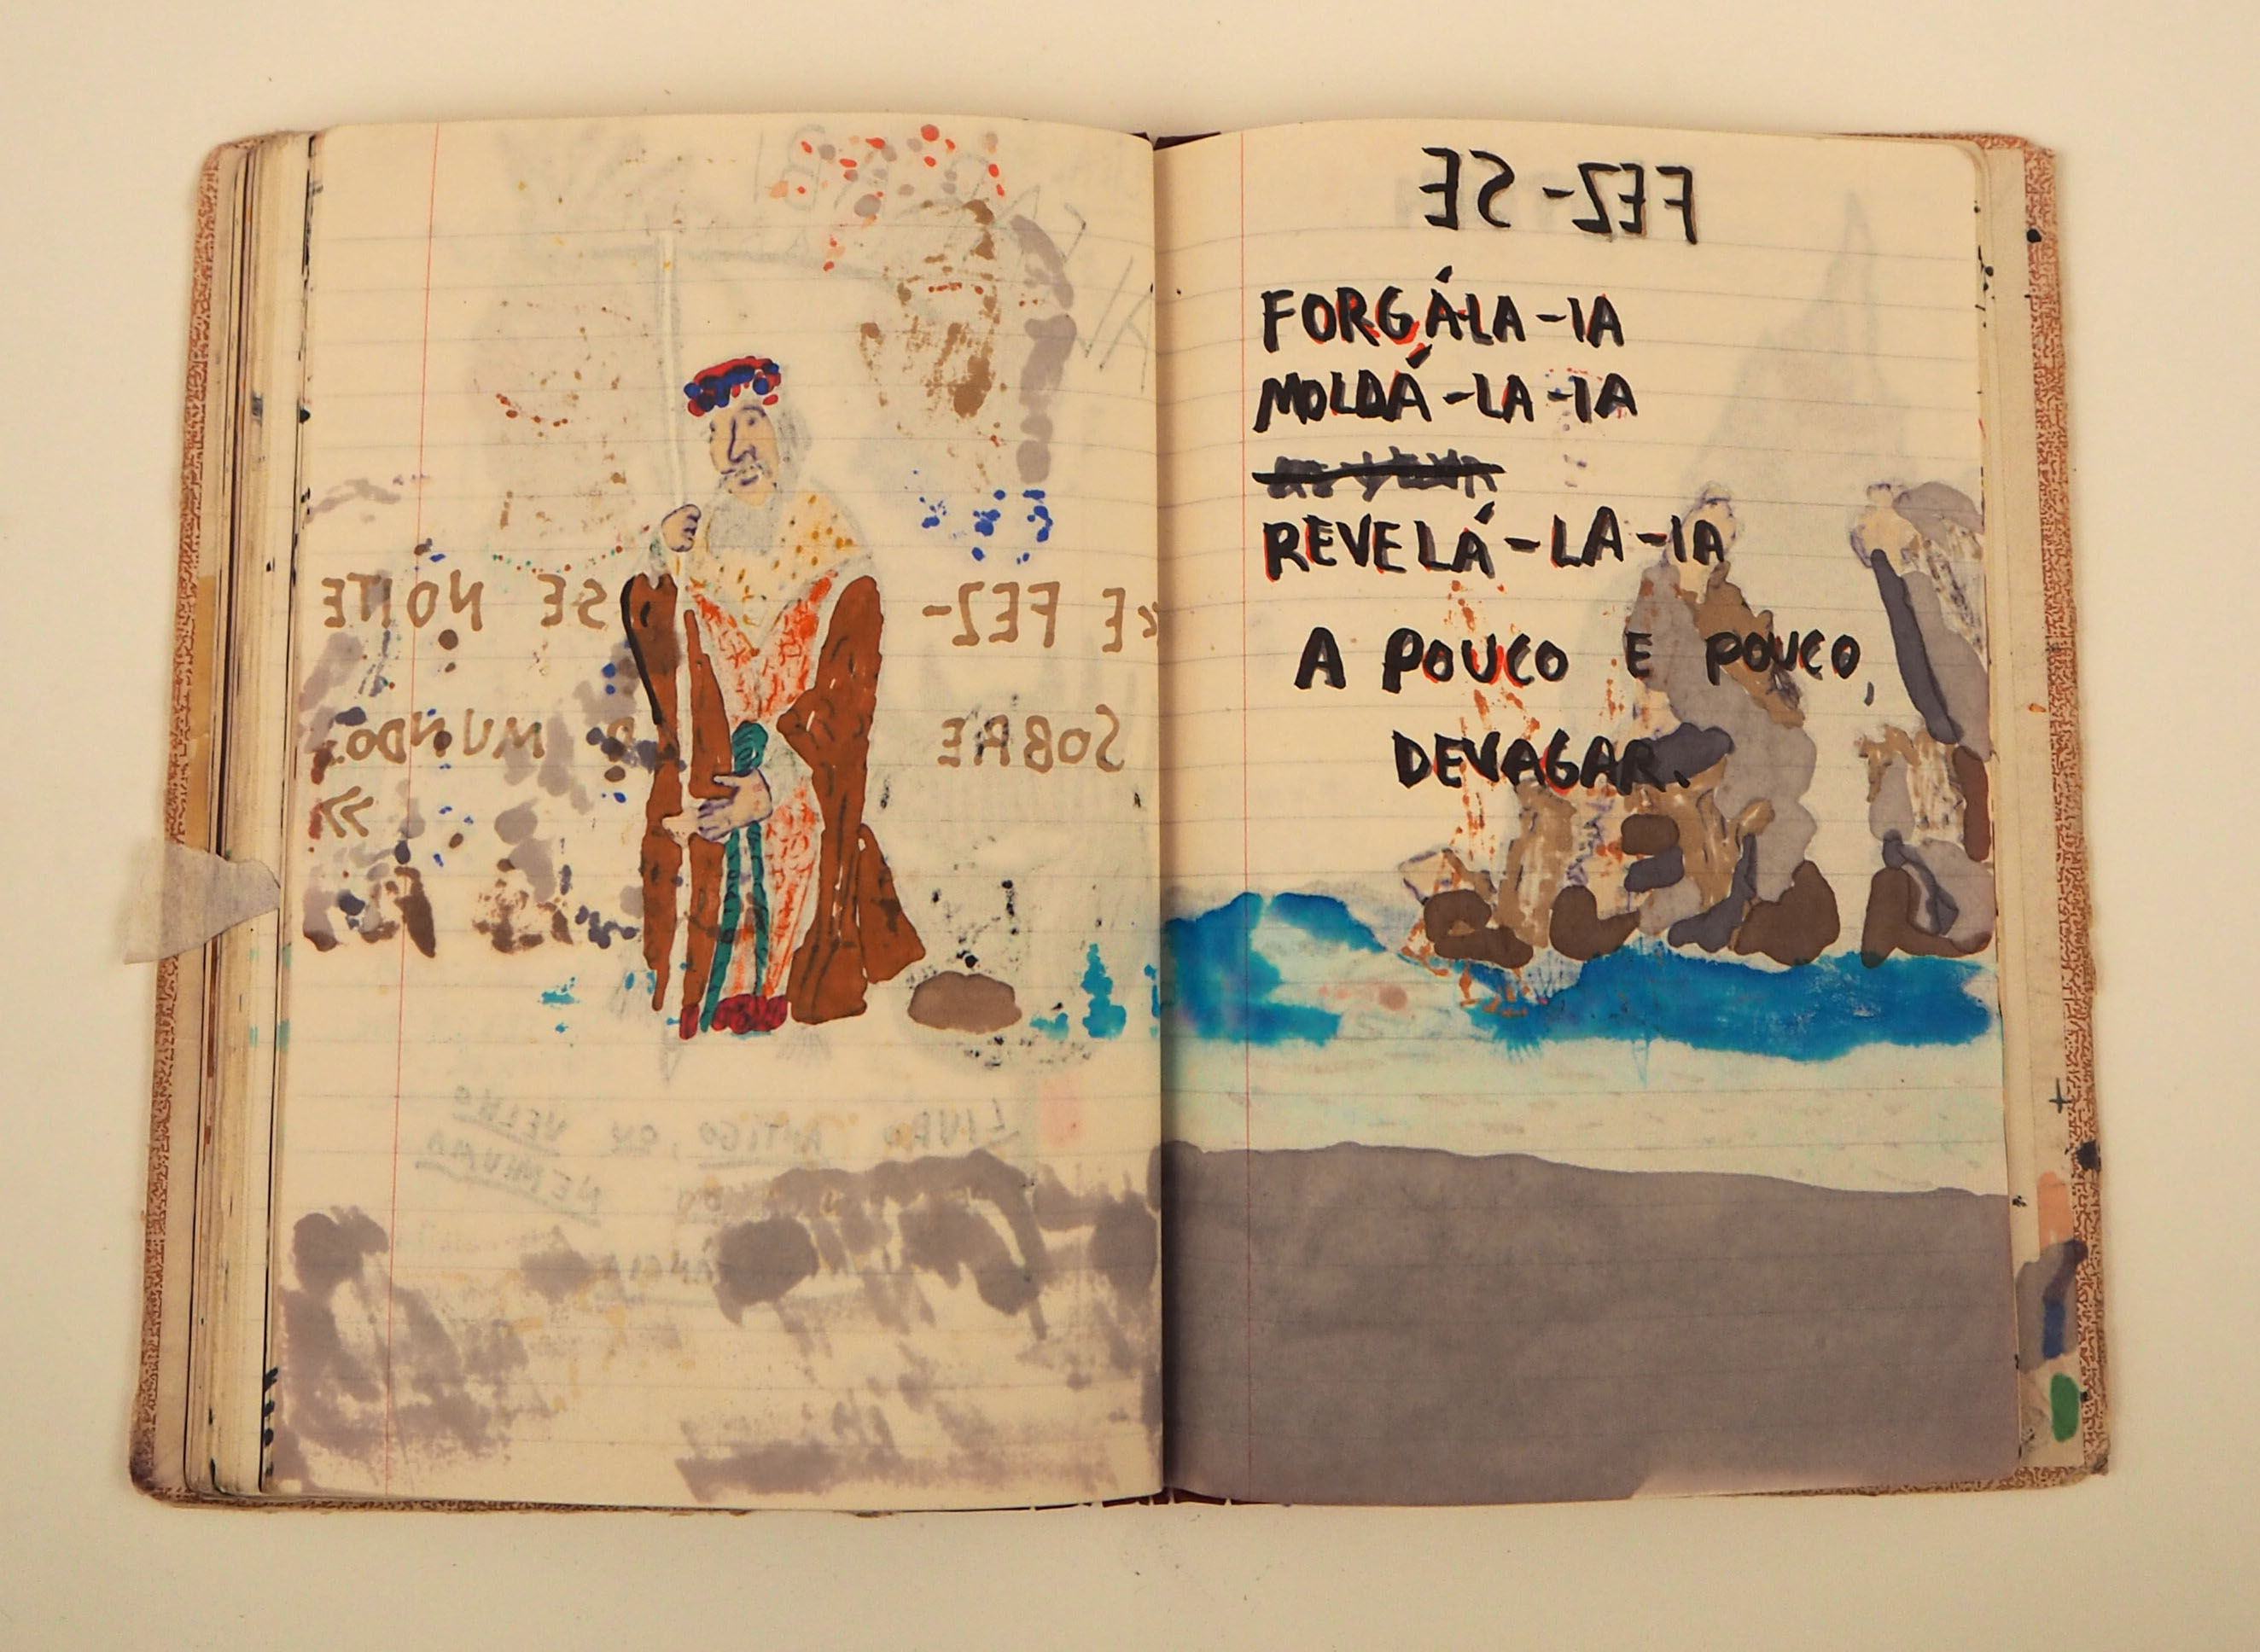 «E FEZ-SE NOITE
SOBRE O MUNDO.
»
LIVRO ANTIGO, OU VELHO
NENHUMA
FEZ-SE
FORGÁ-LA-IA
MOLDÁ-LA-IA
REVELÁ-LA-IA
A POUCO E POUCO,
DEVAGAR.